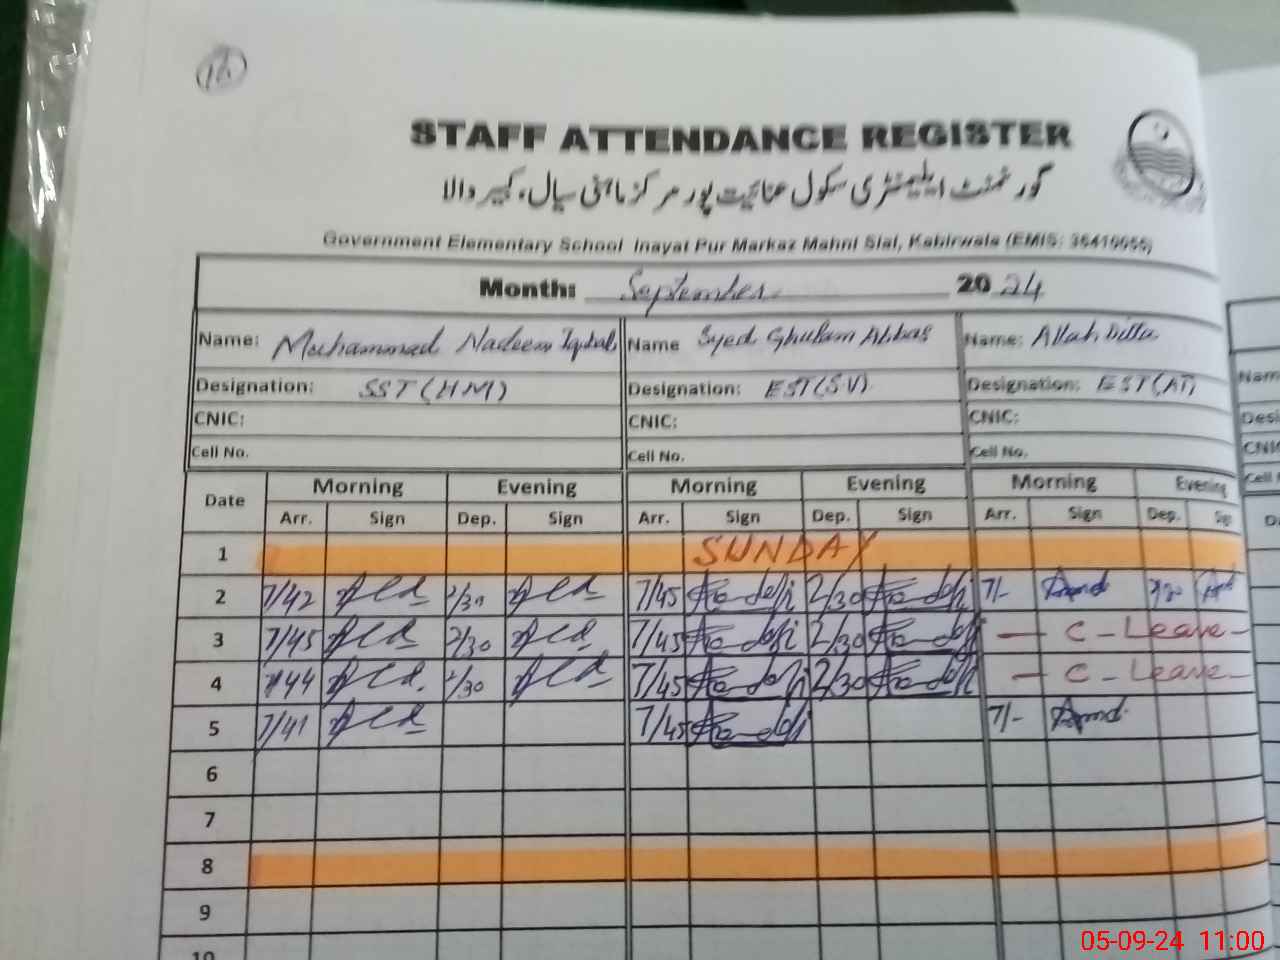 16
STAFF ATTENDANCE REGISTER
گورنمنٹ ایلیمنٹری سکول عنائیت پور مرکز ماہنی سیال، کبیروالا
Government Elementary School Inayat Pur Markaz Mahni Sial, Kabirwala (EMIS:
Month: September 2024
Name: Muhammad Nadeem Iqbal Name Syed Ghulam Abbas Name: Allah Ditta
Designation: SST (HM) Designation: EST(SV) Designation: EST(AT)
CNIC: CNIC: CNIC:
Cell No. Cell No. Cell No.
Date Morning Evening Morning Evening Morning Evening
Arr. Sign Dep. Sign Arr. Sign Dep. Sign Arr. Sign Dep. Sign
1 SUNDAY
2 7/42 2/30 7/45 2/30 7/-
3 7/45 2/30 7/45 2/30 — C - Leave -
4 7/44 2/30 7/45 2/30 — C - Leave -
5 7/41 7/45 7/-
6
7
8
9
10
05-09-24 11:00